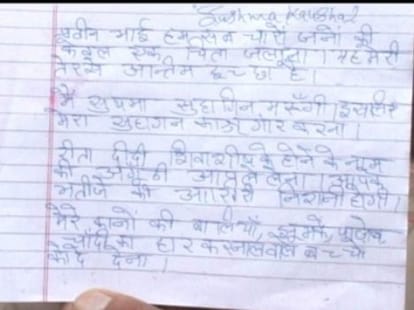 Sushma Kaushal
प्रवीन भाई हम सब चारों जनों की
केवल एक चिता जलाना। यह मेरी
तरफ से अन्तिम इच्छा है।
मैं सुषमा सुहागिन मरूँगी। इसलिए
मेरा सुहागन का श्रृंगार करना।
दीदी के होने के नाम
की अंगूठी आप ले लेना। आपके
भतीजे की आखिरी निशानी होगी।
मेरे कानों की बालियाँ, झुमके,
चाँदी का हार करनाल वाले बच्चों
को दे देना।